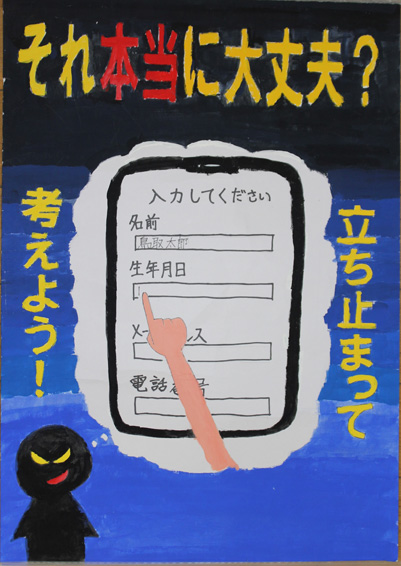 それ本当に大丈夫?
立ち止まって
考えよう!
入力してください
名前
鳥取太郎
生年月日
メールアドレス
電話番号